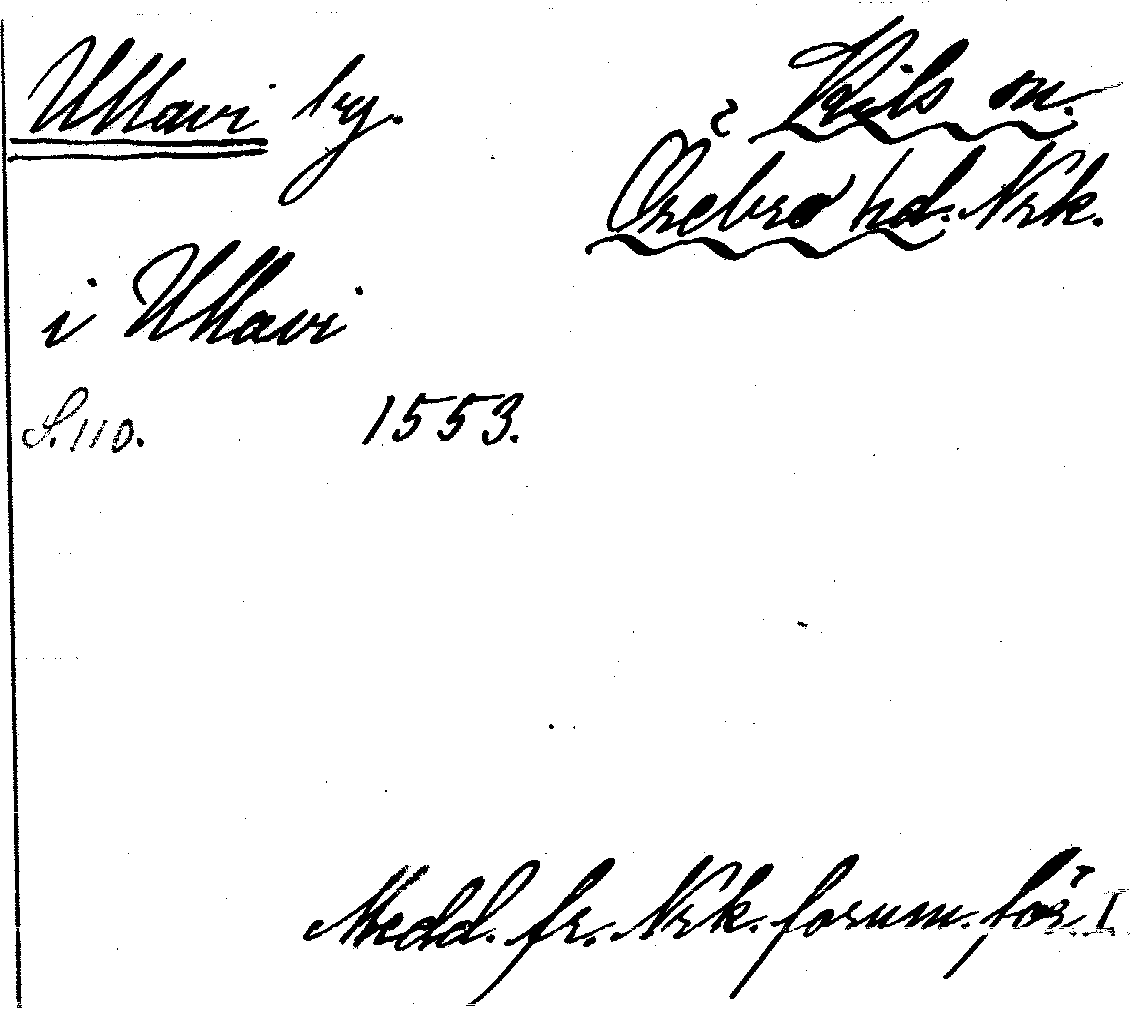 Ullavi by.
Kils sn.
Örebro hd. Nrk.
i Ullavi
S. 110. 1553.
Medd. fr. Nrk. fornm. för. I